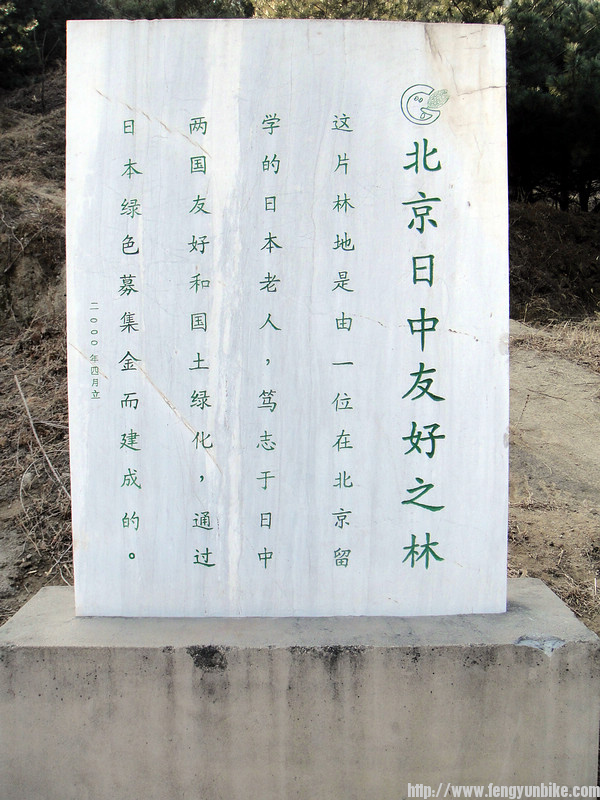 北京日中友好之林
这片林地是由一位在北京留
学的日本老人，笃志于日中
两国友好和国土绿化，通过
日本绿色募集金而建成的。
二〇〇〇年四月立
http://www.fengyunbike.com